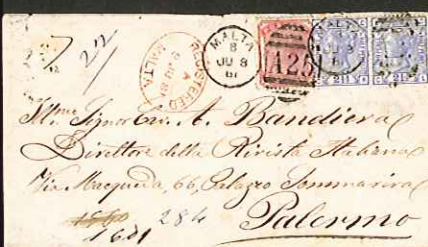 22
REGISTERED
MALTA
MALTA
8
JU 8
81
A25
Illmo Signor Cav. A. Bandiera
Direttore della Rivista Italiana
Via Macqueda, 66, Palazzo Sommariva
Palermo
284
1681